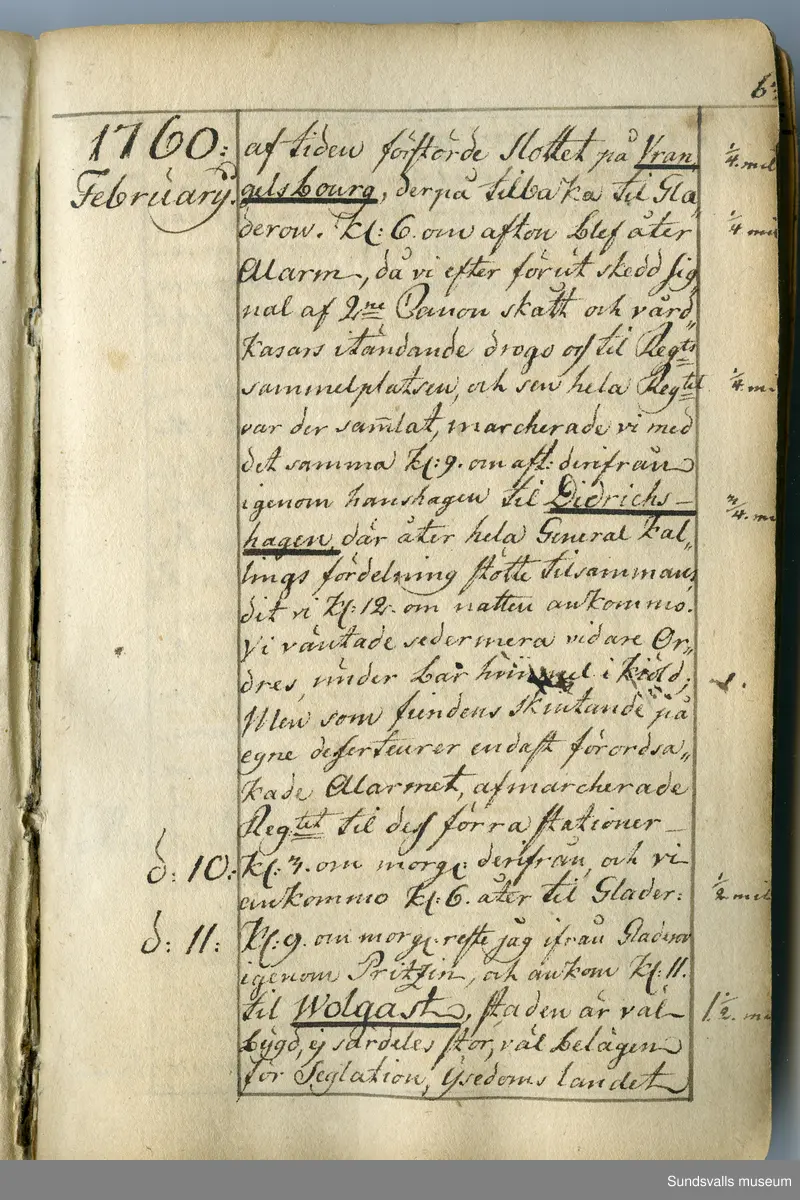 6
1760: af tiden förstörde Slottet på Vran„ ¼. mil
February. gelsbourg, derpå tilbaka til Gla„
derow. Kl: 6. om afton blef åter ¼ mil
Alarm, då vi efter förut skedd Sig„
nal af 2ne Canon skått och vård„
kasars itändande drogo oss til Regts
sammelplatsen, och sen hela Regtet ¼. mi
var der samlat, marcherade vi med
det samma Kl: 9. om aft: derifrån
igenom hanshagen til Didrichs- ¾. mi
hagen, där åter hela General Kal„
lings fördelning stötte tilsammans,
dit vi Kl: 12. om natten ankommo.
Vi väntade sedermera vidare Or„
dres, under bar himmel i Kiöld;
Men som fiendens skiutande på
egne deserteurer endast förordsa„
kade Alarmet, afmarcherade
Regtet til dess förra stationer
d: 10: Kl: 3. om morg: derifrån, och vi
ankommo Kl: 6. åter til Glader: ½ mil
d: 11: Kl: 9. om morg: reste jag ifrån Gladerow
igenom Pritzin, och ankom Kl: 11.
til Wolgast, staden är väl 1½. mi
bygd, ej särdeles stor, väl belägen
för Seglation, Ysedoms landet
Sundsvalls museum